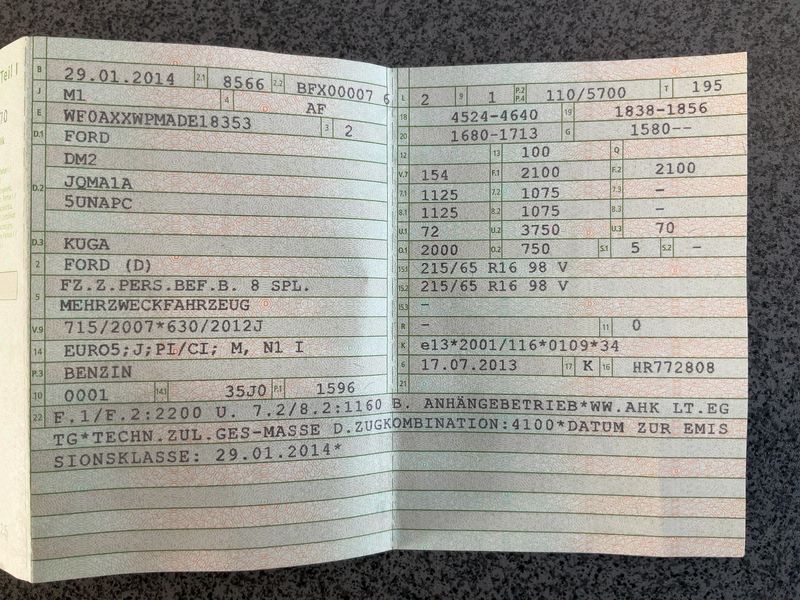 Teil I
B 29.01.2014 2.1 8566 2.2 BFX00007 6
J M1 4 AF
E WF0AXXWPMADE18353 3 2
D.1 FORD
DM2
D.2 JQMA1A
5UNAPC
D.3 KUGA
2 FORD (D)
5 FZ.Z.PERS.BEF.B. 8 SPL.
MEHRZWECKFAHRZEUG
V.9 715/2007*630/2012J
14 EURO5;J;PI/CI; M, N1 I
P.3 BENZIN
10 0001 14.1 35J0 P.1 1596
L 2 9 1 P.2 P.4 110/5700 T 195
18 4524-4640 19 1838-1856
20 1680-1713 G 1580--
12 13 100 Q
V.7 154 F.1 2100 F.2 2100
7.1 1125 7.2 1075 7.3 -
8.1 1125 8.2 1075 8.3 -
U.1 72 U.2 3750 U.3 70
O.1 2000 O.2 750 S.1 5 S.2 -
15.1 215/65 R16 98 V
15.2 215/65 R16 98 V
15.3 -
R - 11 0
K e13*2001/116*0109*34
6 17.07.2013 17 K 16 HR772808
21
22 F.1/F.2:2200 U. 7.2/8.2:1160 B. ANHÄNGEBETRIEB*WW.AHK LT.EG
TG*TECHN.ZUL.GES-MASSE D.ZUGKOMBINATION:4100*DATUM ZUR EMIS
SIONSKLASSE: 29.01.2014*